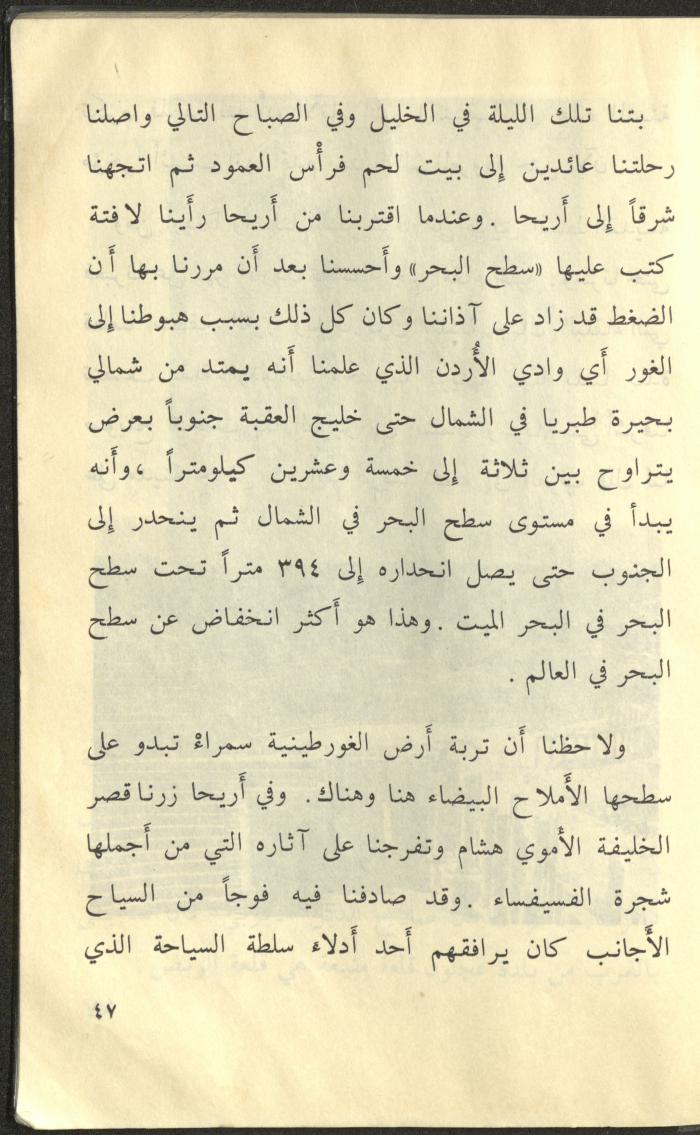 بتنا تلك الليلة في الخليل وفي الصباح التالي واصلنا
رحلتنا عائدين إلى بيت لحم فرأْس العمود ثم اتجهنا
شرقاً إلى أَريحا . وعندما اقتربنا من أَريحا رأَينا لافتة
كتب عليها «سطح البحر» وأَحسسنا بعد أَن مررنا بها أَن
الضغط قد زاد على آذاننا وكان كل ذلك بسبب هبوطنا إلى
الغور أَي وادي الأُردن الذي علمنا أَنه يمتد من شمالي
بحيرة طبريا في الشمال حتى خليج العقبة جنوباً بعرض
يتراوح بين ثلاثة إلى خمسة وعشرين كيلومتراً ، وأَنه
يبدأ في مستوى سطح البحر في الشمال ثم ينحدر إلى
الجنوب حتى يصل انحداره إلى ٣٩٤ متراً تحت سطح
البحر في البحر الميت . وهذا هو أَكثر انخفاض عن سطح
البحر في العالم .
ولاحظنا أَن تربة أَرض الغورطينية سمراءْ تبدو على
سطحها الأَملاح البيضاء هنا وهناك . وفي أَريحا زرنا قصر
الخليفة الأُموي هشام وتفرجنا على آثاره التي من أَجملها
شجرة الفسيفساء . وقد صادفنا فيه فوجاً من السياح
الأَجانب كان يرافقهم أَحد أَدلاء سلطة السياحة الذي
٤٧